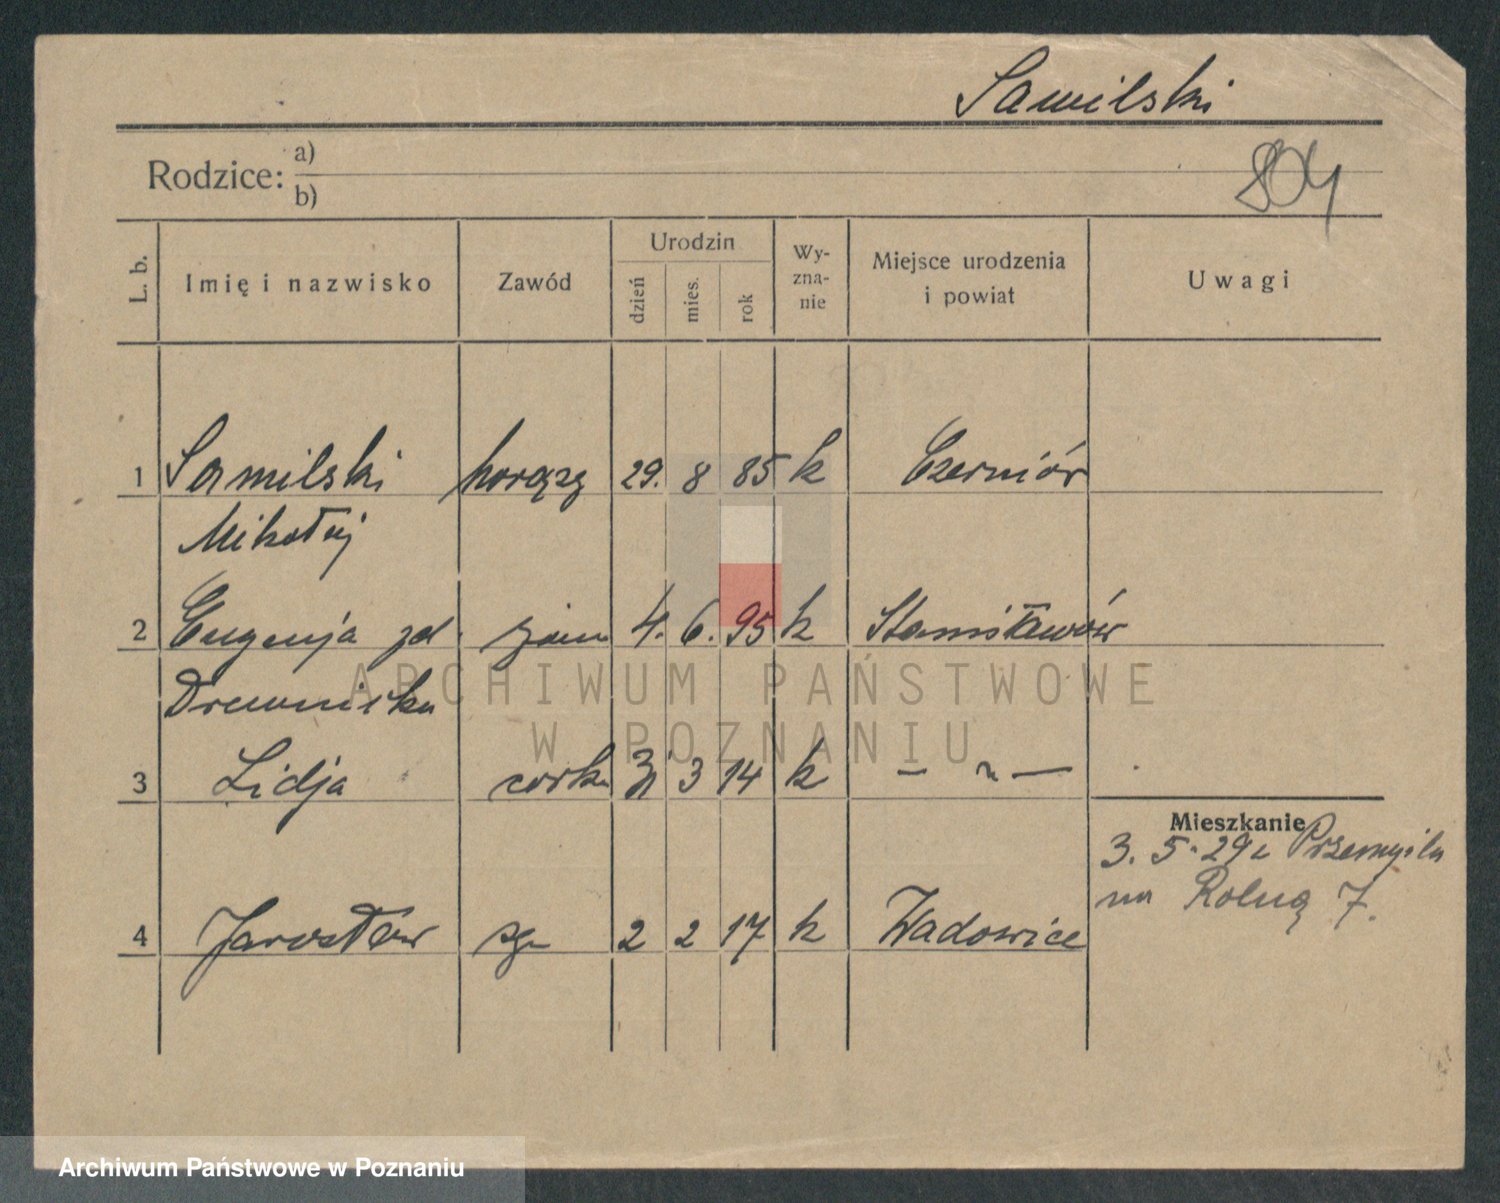 Samilski
Rodzice: a)
b)
804
L. b.
Imię i nazwisko
Zawód
Urodzin
dzień
mies.
rok
Wy-
zna-
nie
Miejsce urodzenia
i powiat
Uwagi
1 Samilski chorąży 29. 8 85 k Czerniów
Mikołaj
2 Eugenja zd. żona 4. 6. 95 k Stanisławów
3 Lidja córka 3 14 k — " —
Mieszkanie
3. 5. 29 z Przemyśla
na Rolną 7.
4 Jarosław syn 2 2 17 k Wadowice
ARCHIWUM PAŃSTWOWE
W POZNANIU
Archiwum Państwowe w Poznaniu